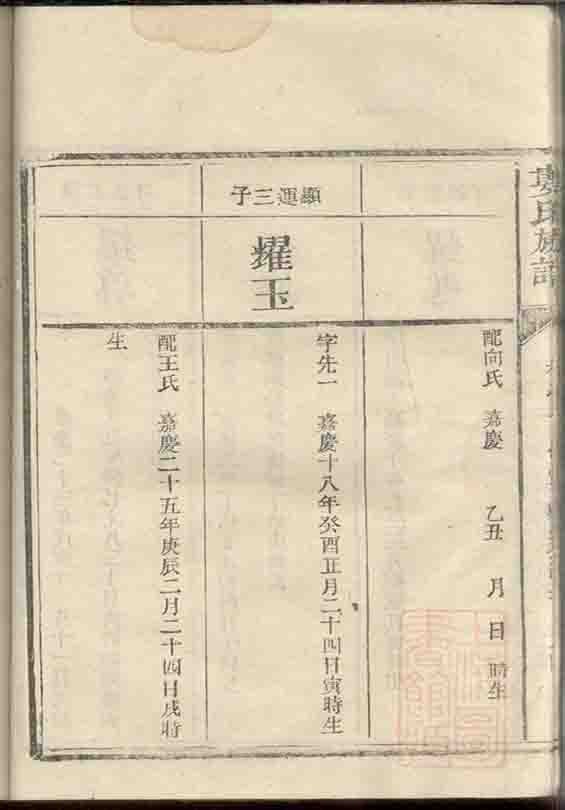 氏族譜
配向氏 嘉慶 乙丑 月 日 時生
顯運三子
耀玉
字先一 嘉慶十八年癸酉正月二十四日寅時生
配王氏 嘉慶二十五年庚辰二月二十四日戌時
生